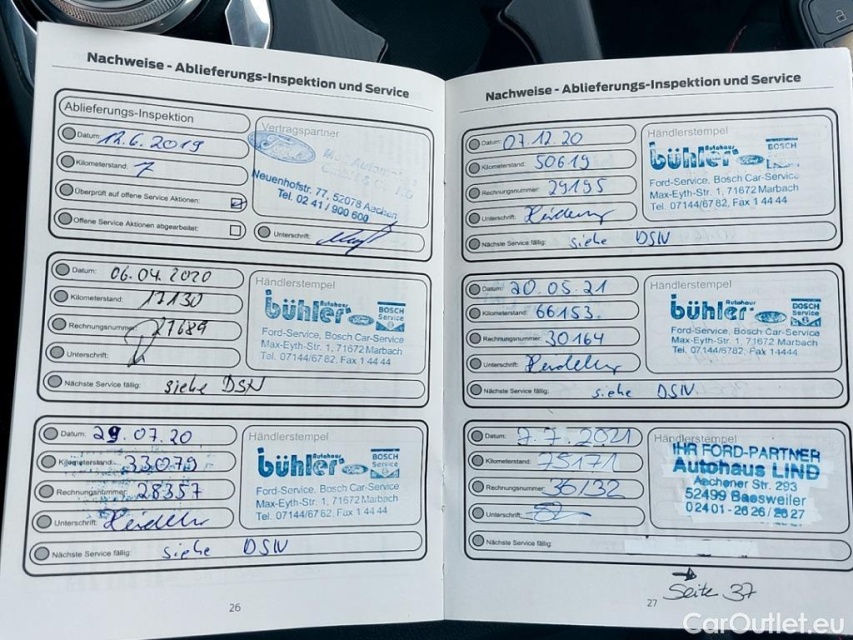 Nachweise - Ablieferungs-Inspektion und Service
Ablieferungs-Inspektion
Datum: 12.6.2019
Kilometerstand: 7
Überprüft auf offene Service Aktionen:
Offene Service Aktionen abgearbeitet:
Vertragspartner
Ford
Neuenhofstr. 77, 52078 Aachen
Tel. 02 41 / 900 600
Unterschrift:
Datum: 06.04.2020
Kilometerstand: 17130
Rechnungsnummer: 27689
Unterschrift:
Nächste Service fällig: siehe DSN
Händlerstempel
Autohaus
bühler Ford BOSCH Service
Ford-Service, Bosch Car-Service
Max-Eyth-Str. 1, 71672 Marbach
Tel. 07144/67 82, Fax 1 44 44
Datum: 29.07.20
Kilometerstand: 33079
Rechnungsnummer: 28357
Unterschrift:
Nächste Service fällig: siehe DSN
Händlerstempel
Autohaus
bühler Ford BOSCH Service
Ford-Service, Bosch Car-Service
Max-Eyth-Str. 1, 71672 Marbach
Tel. 07144/67 82, Fax 1 44 44
26
Nachweise - Ablieferungs-Inspektion und Service
Datum: 07.12.20
Kilometerstand: 50619
Rechnungsnummer: 29195
Unterschrift:
Nächste Service fällig: siehe DSN
Händlerstempel
Autohaus
bühler Ford BOSCH
Ford-Service, Bosch Car-Service
Max-Eyth-Str. 1, 71672 Marbach
Tel. 07144/67 82, Fax 1 44 44
Datum: 20.05.21
Kilometerstand: 66153.
Rechnungsnummer: 30164
Unterschrift:
Nächste Service fällig: siehe DSN.
Händlerstempel
Autohaus
bühler Ford BOSCH Service
Ford-Service, Bosch Car-Service
Max-Eyth-Str. 1, 71672 Marbach
Tel. 07144/67 82, Fax 1 44 44
Datum: 7.7.2021
Kilometerstand: 75171
Rechnungsnummer: 36132
Unterschrift:
Nächste Service fällig:
Händlerstempel
IHR FORD-PARTNER
Autohaus LIND
Aachener Str. 293
52499 Baesweiler
02401 - 26 26 / 26 27
27
→ Seite 37
CarOutlet.eu